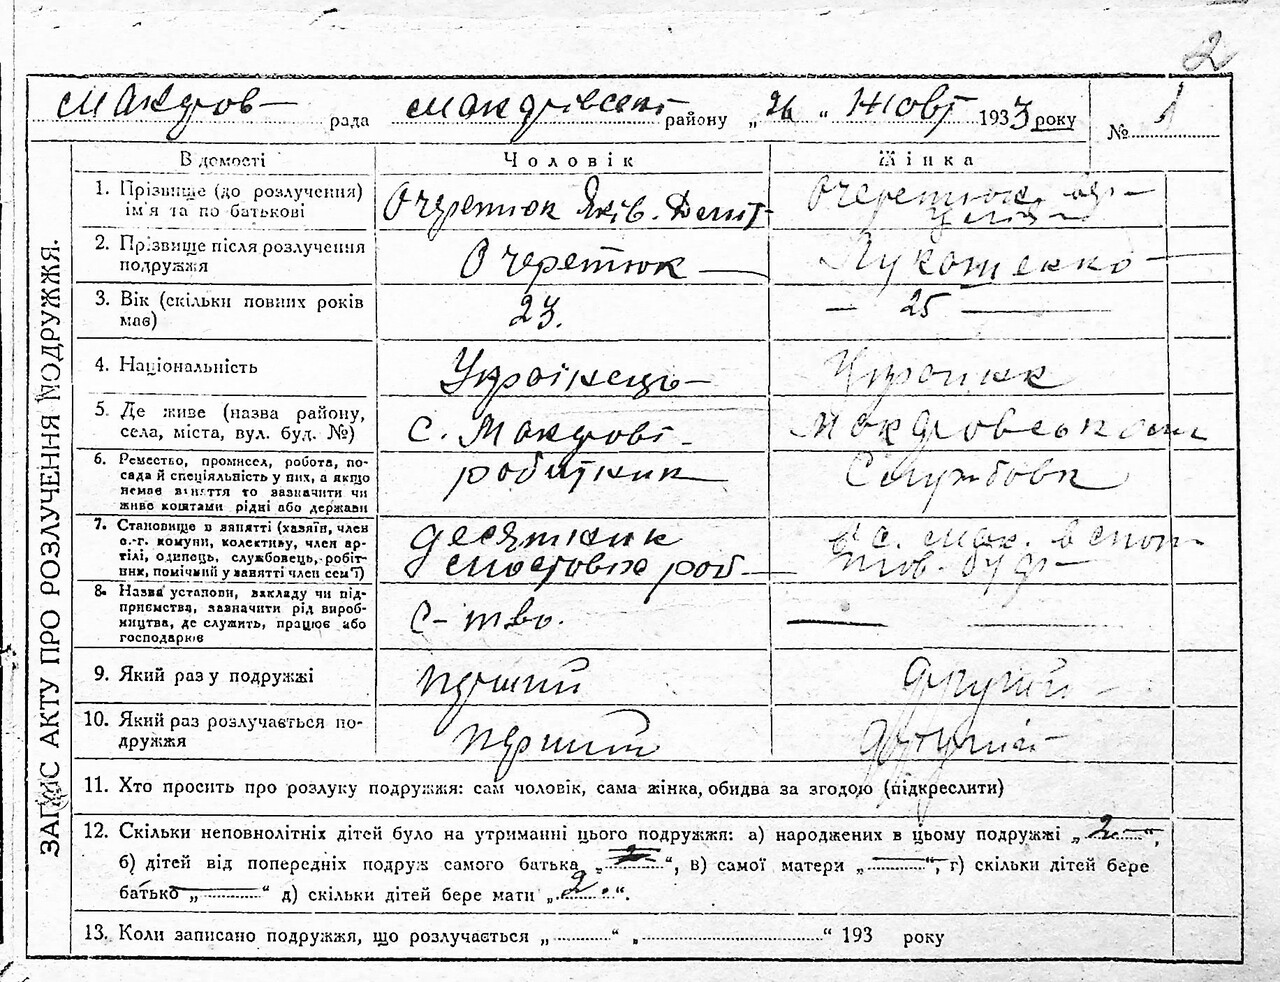 2
Макаров рада Макарівськ району „26“ Жовт 1933 року № 1
ЗАПИС АКТУ ПРО РОЗЛУЧЕННЯ ПОДРУЖЖЯ.
В домості Чоловік Жінка
1. Прізвище (до розлучення)
ім'я та по батькові
Очеретюк Яків. Дем
Очеретюк
2. Прізвище після розлучення
подружжя
Очеретюк
Лукошенко
3. Вік (скільки повних років
має)
23.
— 25 —
4. Національність
Українець
Українк
5. Де живе (назва району,
села, міста, вул. буд. №)
с. Макарові
6. Ремество, промисел, робота, по-
сада й спеціяльність у них, а якщо
немає заняття то зазначити чи
живе коштами рідні або держави
робітник
Службовк
7. Становище в занятті (хазяїн, член
с.-г. комуни, колективу, член ар-
тілі, одинець, службовець, робіт-
ник, помічний у занятті член сем'ї)
десятник
мостових роб
с. мак.
8. Назва установи, закладу чи під-
приємства, зазначити рід вироб-
ництва, де служить, працює або
господарює
С-тво.
9. Який раз у подружжі
перший
другий
10. Який раз розлучається по-
дружжя
перший
другий
11. Хто просить про розлуку подружжя: сам чоловік, сама жінка, обидва за згодою (підкреслити)
12. Скільки неповнолітніх дітей було на утриманні цього подружжя: а) народжених в цьому подружжі „2“,
б) дітей від попередніх подруж самого батька „—“, в) самої матери „—“, г) скільки дітей бере
батько „—“ д) скільки дітей бере мати „2“.
13. Коли записано подружжя, що розлучається „......“ „......“ 193 року